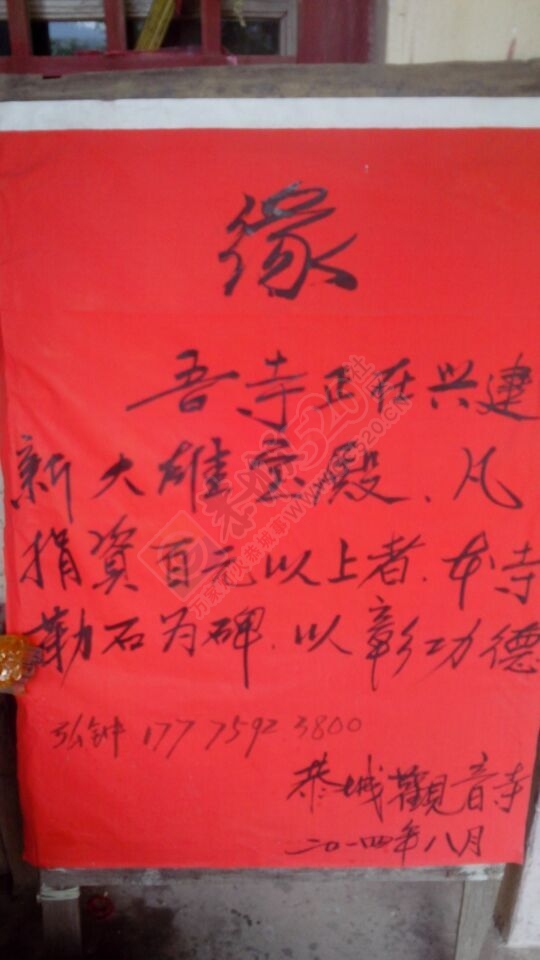 缘
吾寺正在兴建
新大雄宝殿、凡
捐资百元以上者、本寺
勒石为碑、以彰功德
弘钟 177 7592 3800
恭城觀音寺
二〇一四年八月
恭城520社
WWW.GC520.CN
万家灯火恭城事